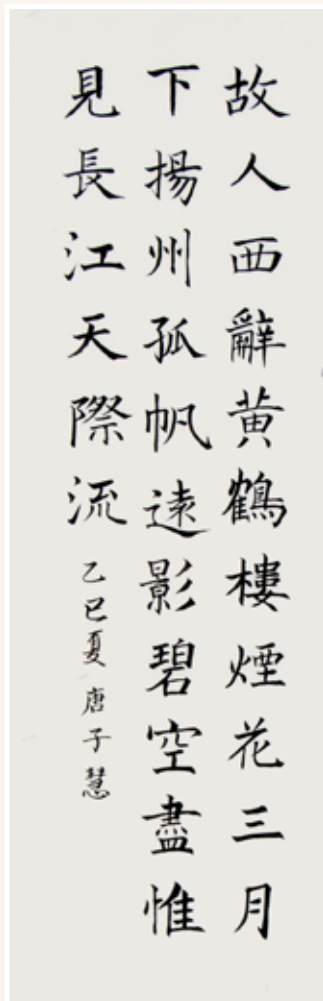 故人西辭黄鶴樓煙花三月
下揚州孤帆遠影碧空盡惟
見長江天際流
乙巳夏唐子慧